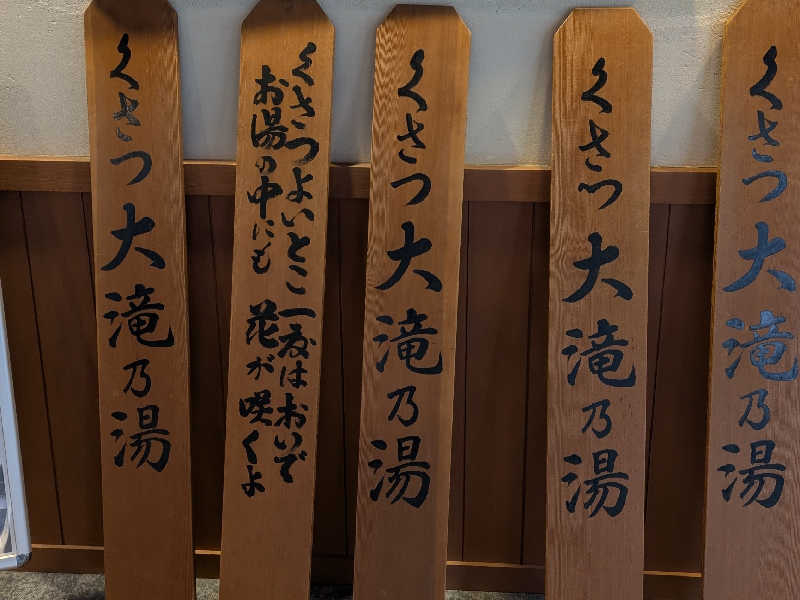 くさつ大滝乃湯
くさつよいとこ 一度はおいで
お湯の中にも 花が咲くよ
くさつ大滝乃湯
くさつ大滝乃湯
くさつ大滝乃湯